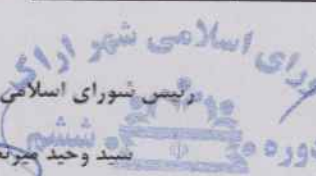 ورای اسلامی شهر اراک
رئیس شورای اسلامی
دوره ششم
سید وحید میر